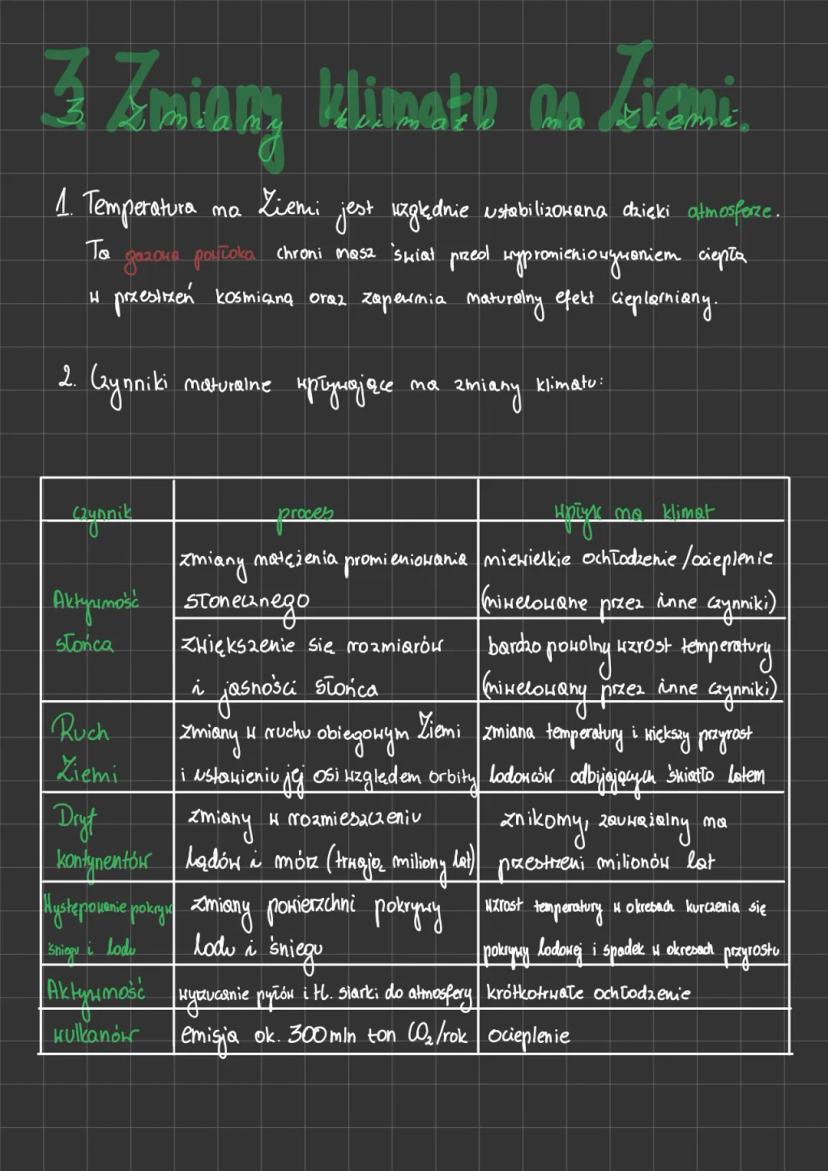 3. Zmiany klimatu na Ziemi.
1. Temperatura na Ziemi jest względnie ustabilizowana dzięki atmosferze.
Ta gazowa powłoka chroni nasz świat przed wypromieniowywaniem ciepła
w przestrzeń kosmiczną oraz zapewnia naturalny efekt cieplarniany.
2. Czynniki naturalne wpływające na zmiany klimatu:
czynnik proces wpływ na klimat
zmiany natężenia promieniowania niewielkie ochłodzenie/ocieplenie
Aktywność słonecznego (niwelowane przez inne czynniki)
słońca zwiększenie się rozmiarów bardzo powolny wzrost temperatury
i jasności słońca (niwelowany przez inne czynniki)
Ruch zmiany w ruchu obiegowym Ziemi zmiana temperatury i większy przyrost
Ziemi i ustawieniu jej osi względem orbity lodowców odbijających światło latem
Dryf zmiany w rozmieszczeniu znikomy, zauważalny na
kontynentów lądów i mórz (trwają miliony lat) przestrzeni milionów lat
Występowanie pokrywy zmiany powierzchni pokrywy wzrost temperatury w okresach kurczenia się
śniegu i lodu lodu i śniegu pokrywy lodowej i spadek w okresach przyrostu
Aktywność wyrzucanie pyłów i tl. siarki do atmosfery krótkotrwałe ochłodzenie
wulkanów emisja ok. 300 mln ton CO₂/rok ocieplenie